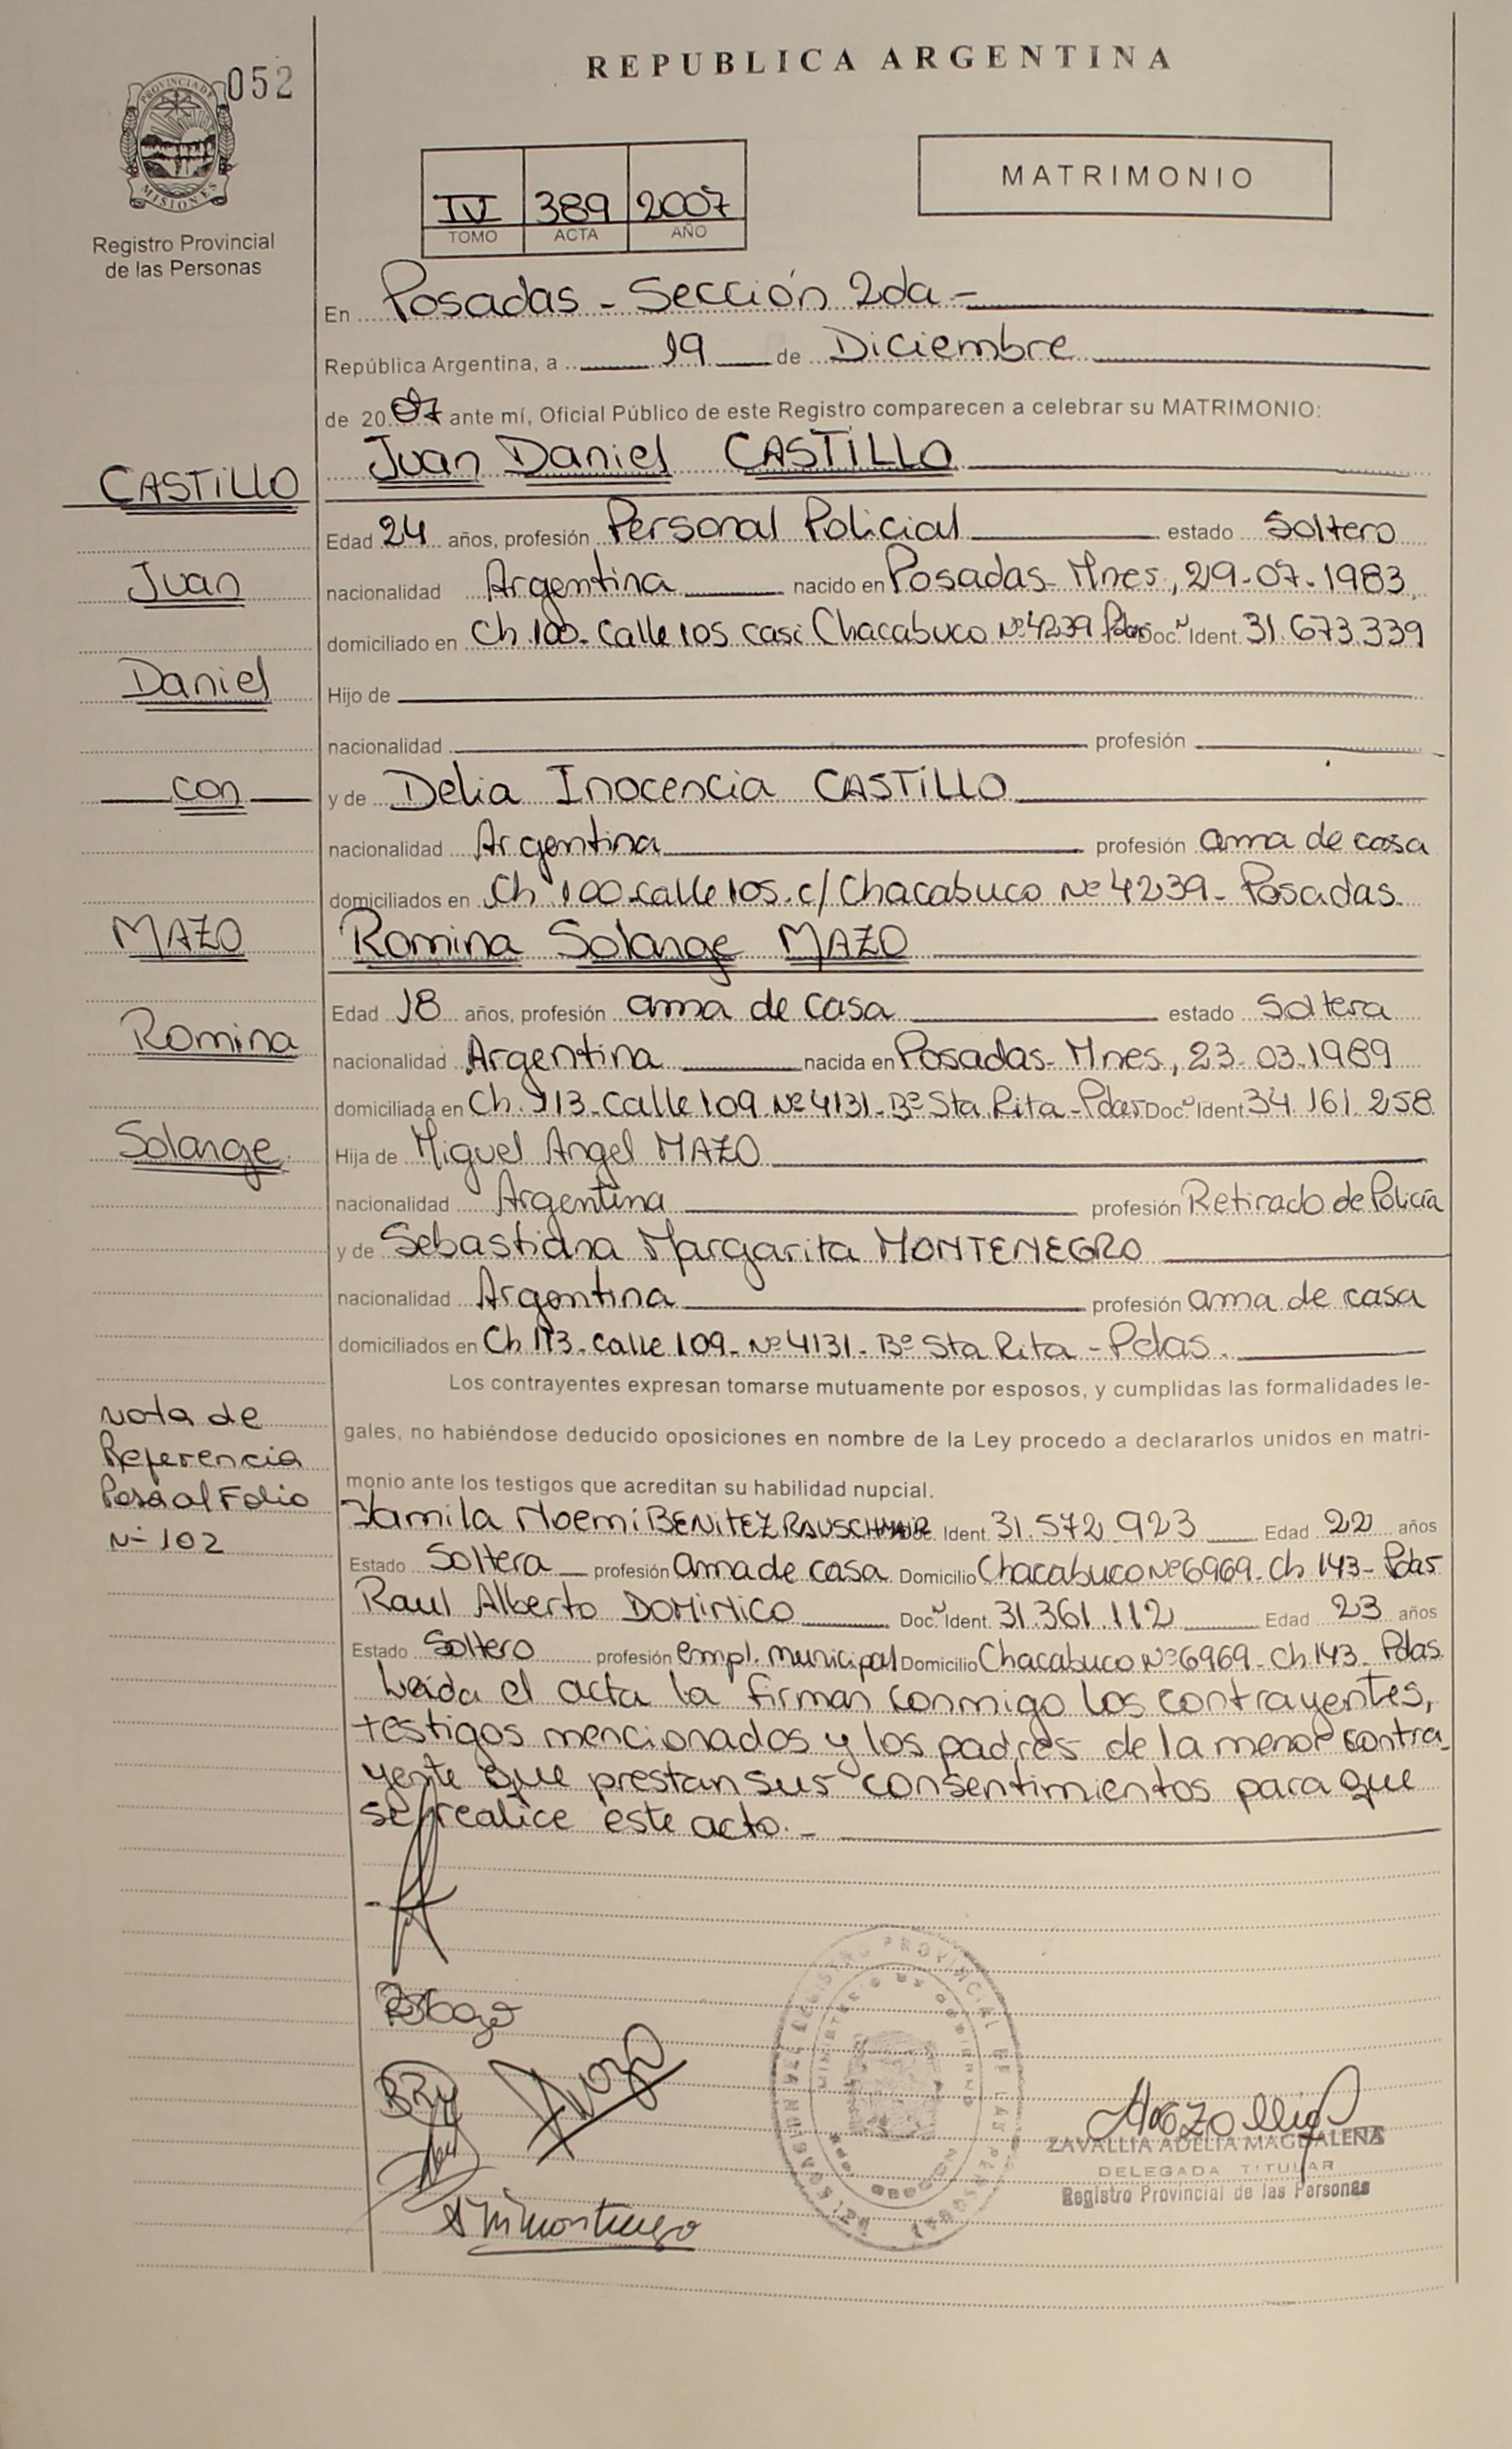 052
PROVINCIA DE
MISIONES
Registro Provincial
de las Personas
REPUBLICA ARGENTINA
IV 389 2007
TOMO ACTA AÑO
MATRIMONIO
En Posadas - Sección 2da -
República Argentina, a 19 de Diciembre
de 2007 ante mí, Oficial Público de este Registro comparecen a celebrar su MATRIMONIO:
Juan Daniel CASTILLO
Edad 24 años, profesión Personal Policial estado Soltero
nacionalidad Argentina nacido en Posadas - Mnes, 29-07-1983
domiciliado en Ch 100- Calle 105 casi Chacabuco Nº 4239 Pdas Doc. N Ident. 31.673.339
Hijo de
nacionalidad profesión
y de Delia Inocencia CASTILLO
nacionalidad Argentina profesión ama de casa
domiciliados en Ch 100-calle 105. c/ Chacabuco Nº 4239- Posadas.
Romina Solange MAZO
Edad 18 años, profesión ama de casa estado Soltera
nacionalidad Argentina nacida en Posadas- Mnes, 23-03-1989
domiciliada en Ch. 113-Calle 109 Nº 4131- Bº Sta Rita - Pdas Doc. N Ident. 34.161.258
Hija de Miguel Angel MAZO
nacionalidad Argentina profesión Retirado de Policía
y de Sebastiana Margarita MONTENEGRO
nacionalidad Argentina profesión ama de casa
domiciliados en Ch 113-calle 109- Nº 4131- Bº Sta Rita - Pdas.
Los contrayentes expresan tomarse mutuamente por esposos, y cumplidas las formalidades le-
gales, no habiéndose deducido oposiciones en nombre de la Ley procedo a declararlos unidos en matri-
monio ante los testigos que acreditan su habilidad nupcial.
Jamila Noemi BENITEZ RAUSCHMAIR Doc. Ident. 31.572.923 Edad 22 años
Estado Soltera profesión ama de casa Domicilio Chacabuco Nº 6969- Ch 143- Pdas
Raul Alberto DOMINICO Doc. N Ident. 31.361.112 Edad 23 años
Estado Soltero profesión empl. municipal Domicilio Chacabuco Nº 6969- Ch 143- Pdas
Leida el acta la firman conmigo los contrayentes,
testigos mencionados y los padres de la menor contra-
yente que prestan sus consentimientos para que
se realice este acto.-
CASTILLO
Juan
Daniel
con
MAZO
Romina
Solange
Nota de
Referencia
Pasa al Folio
Nº 102
ZAVALLIA ADELIA MAGDALENA
DELEGADA TITULAR
Registro Provincial de las Personas